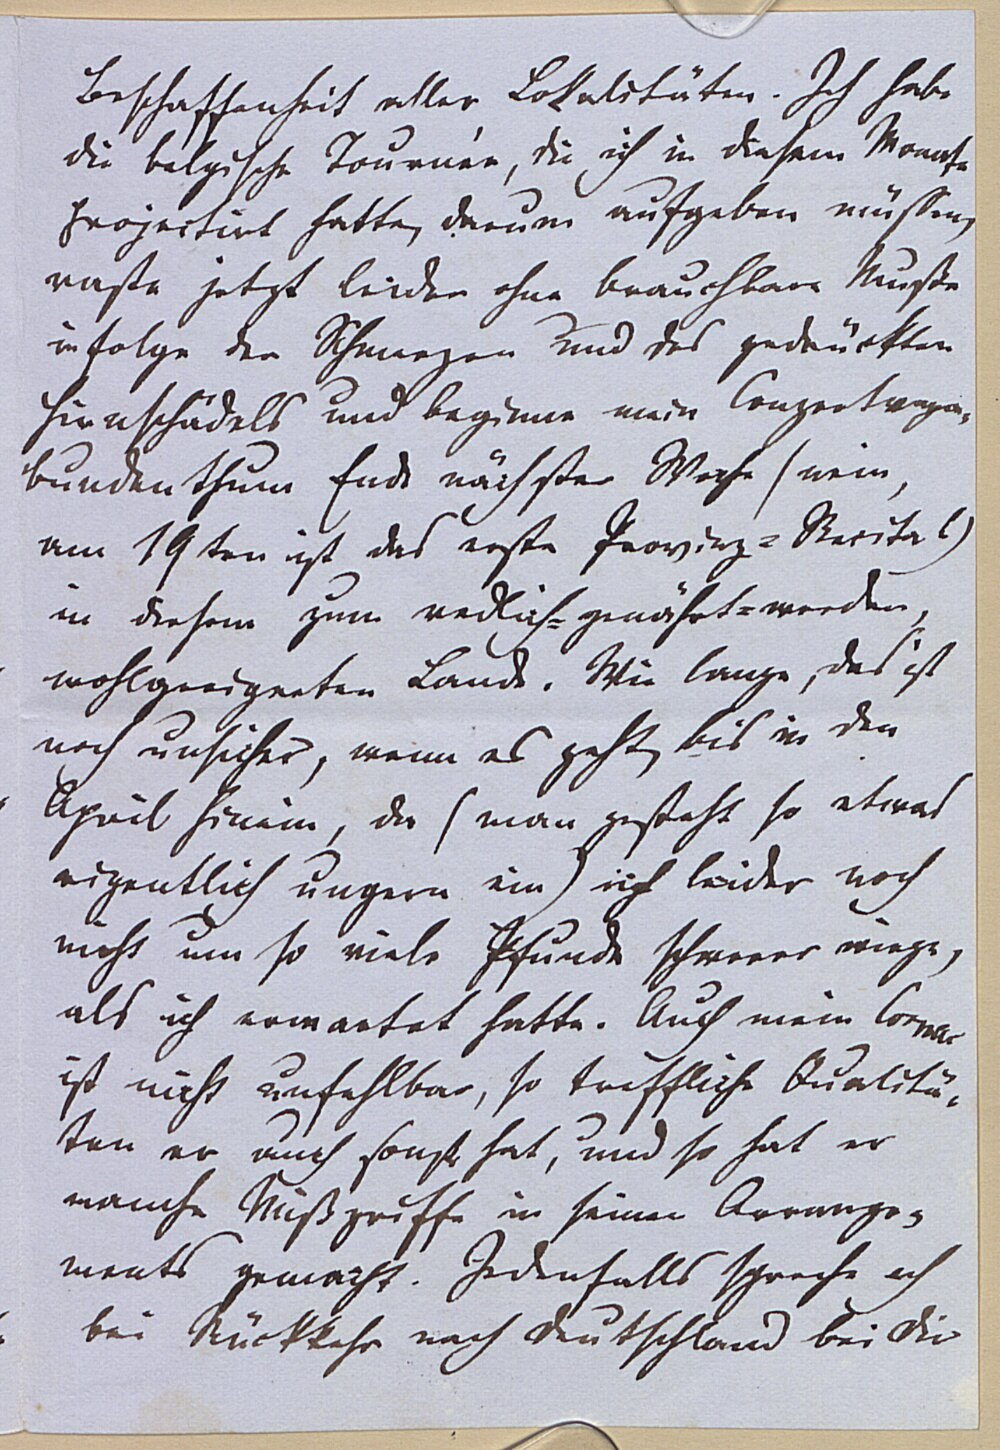 Beschaffenheit aller Lokalitäten. Ich habe
die belgische Tournée, die ich in diesem Monate
projectirt hatte, darum aufgeben müssen,
raste jetzt leider ohne brauchbare Muße
infolge der Schmerzen und des gedrückten
Hirnschädels und beginne mein Conzertvaga-
bundenthum Ende nächster Woche (nein,
am 19ten ist das erste Provinz-Recital)
in diesem zum redlich-genährt-werden,
wohlgeeigneten Lande. Wie lange, das ist
noch unsicher, wenn es geht, bis in den
April hinein, da (man gesteht so etwas
eigentlich ungern ein) ich leider noch
nicht um so viele Pfunde schwerer wiege,
als ich erwartet hatte. Auch mein Cornac
ist nicht unfehlbar, so treffliche Qualitä-
ten er auch sonst hat, und so hat er
manche Mißgriffe in seinen Arrange-
ments gemacht. Jedenfalls spreche ich
bei Rückkehr nach Deutschland bei Dir